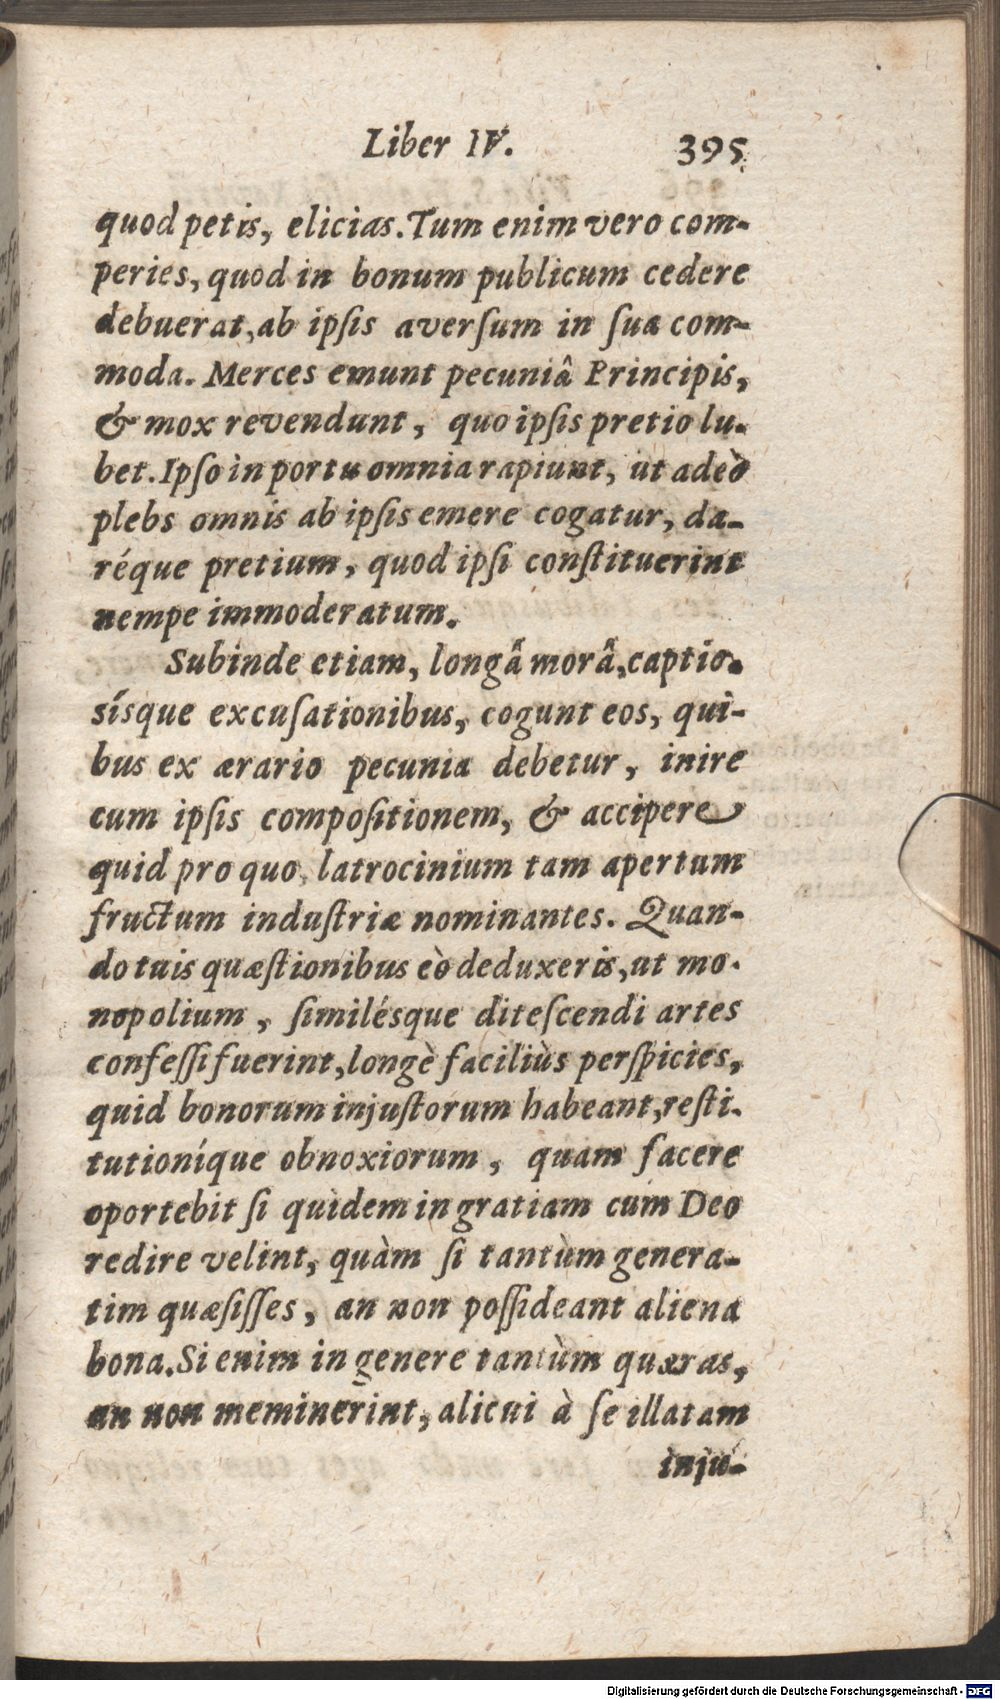 Liber IV. 395
quod petis, elicias. Tum enim vero com-
peries, quod in bonum publicum cedere
debuerat, ab ipſis averſum in ſua com-
moda. Merces emunt pecuniâ Principis,
& mox revendunt, quo ipſis pretio lu-
bet. Ipſo in portu omnia rapiunt, ut adeò
plebs omnis ab ipſis emere cogatur, da-
réque pretium, quod ipſi conſtituerint
nempe immoderatum.
Subinde etiam, longâ morâ, captio-
sísque excuſationibus, cogunt eos, qui-
bus ex ærario pecunia debetur, inire
cum ipſis compoſitionem, & accipere
quid pro quo, latrocinium tam apertum
fructum induſtriæ nominantes. Quan-
do tuis quæſtionibus eò deduxeris, ut mo-
nopolium, ſimilésque diteſcendi artes
confeſſi fuerint, longè faciliùs perſpicies,
quid bonorum injuſtorum habeant, reſti-
tutioníque obnoxiorum, quam facere
oportebit ſi quidem in gratiam cum Deo
redire velint, quàm ſi tantùm genera-
tim quæſiſſes, an non poſſideant aliena
bona. Si enim in genere tantùm quæras,
an non meminerint, alicui à ſe illatam
inju-
Digitalisierung gefördert durch die Deutsche Forschungsgemeinschaft - DFG